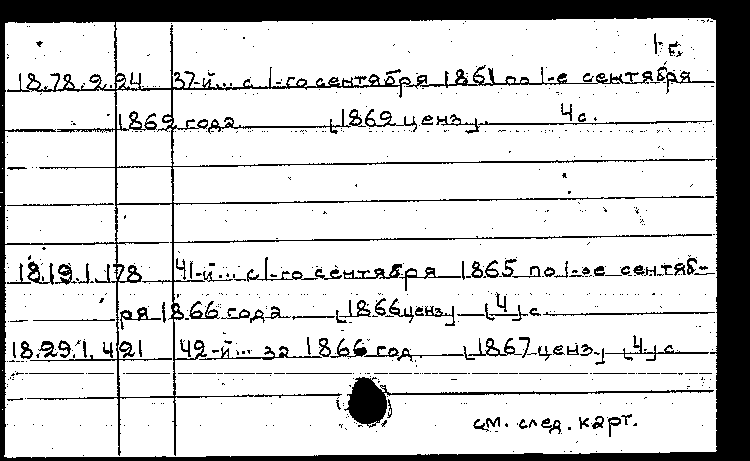 1 г.
18.78.9.24 37-й... с 1-го сентября 1861 по 1-е сентября
1862 года [1862 ценз.]. 4 с.
18.19.1.178 41-й... с 1-го сентября 1865 по 1-ое сентяб-
ря 1866 года. [1866 ценз.] [4] с.
18.29.1.421 42-й... за 1866 год. [1867 ценз.] [4] с.
см. след. карт.